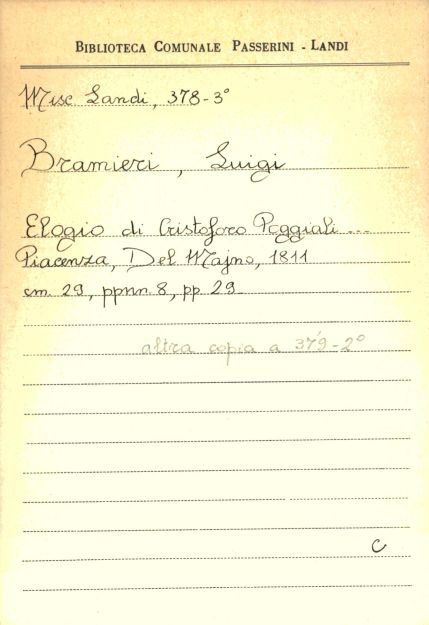 BIBLIOTECA COMUNALE PASSERINI - LANDI
Misc. Landi, 378-3°
Bramieri, Luigi
Elogio di Cristoforo Poggiali ...
Piacenza, Del Majno, 1811
cm. 29, ppnn. 8, pp. 29
altra copia a 379-2°
C